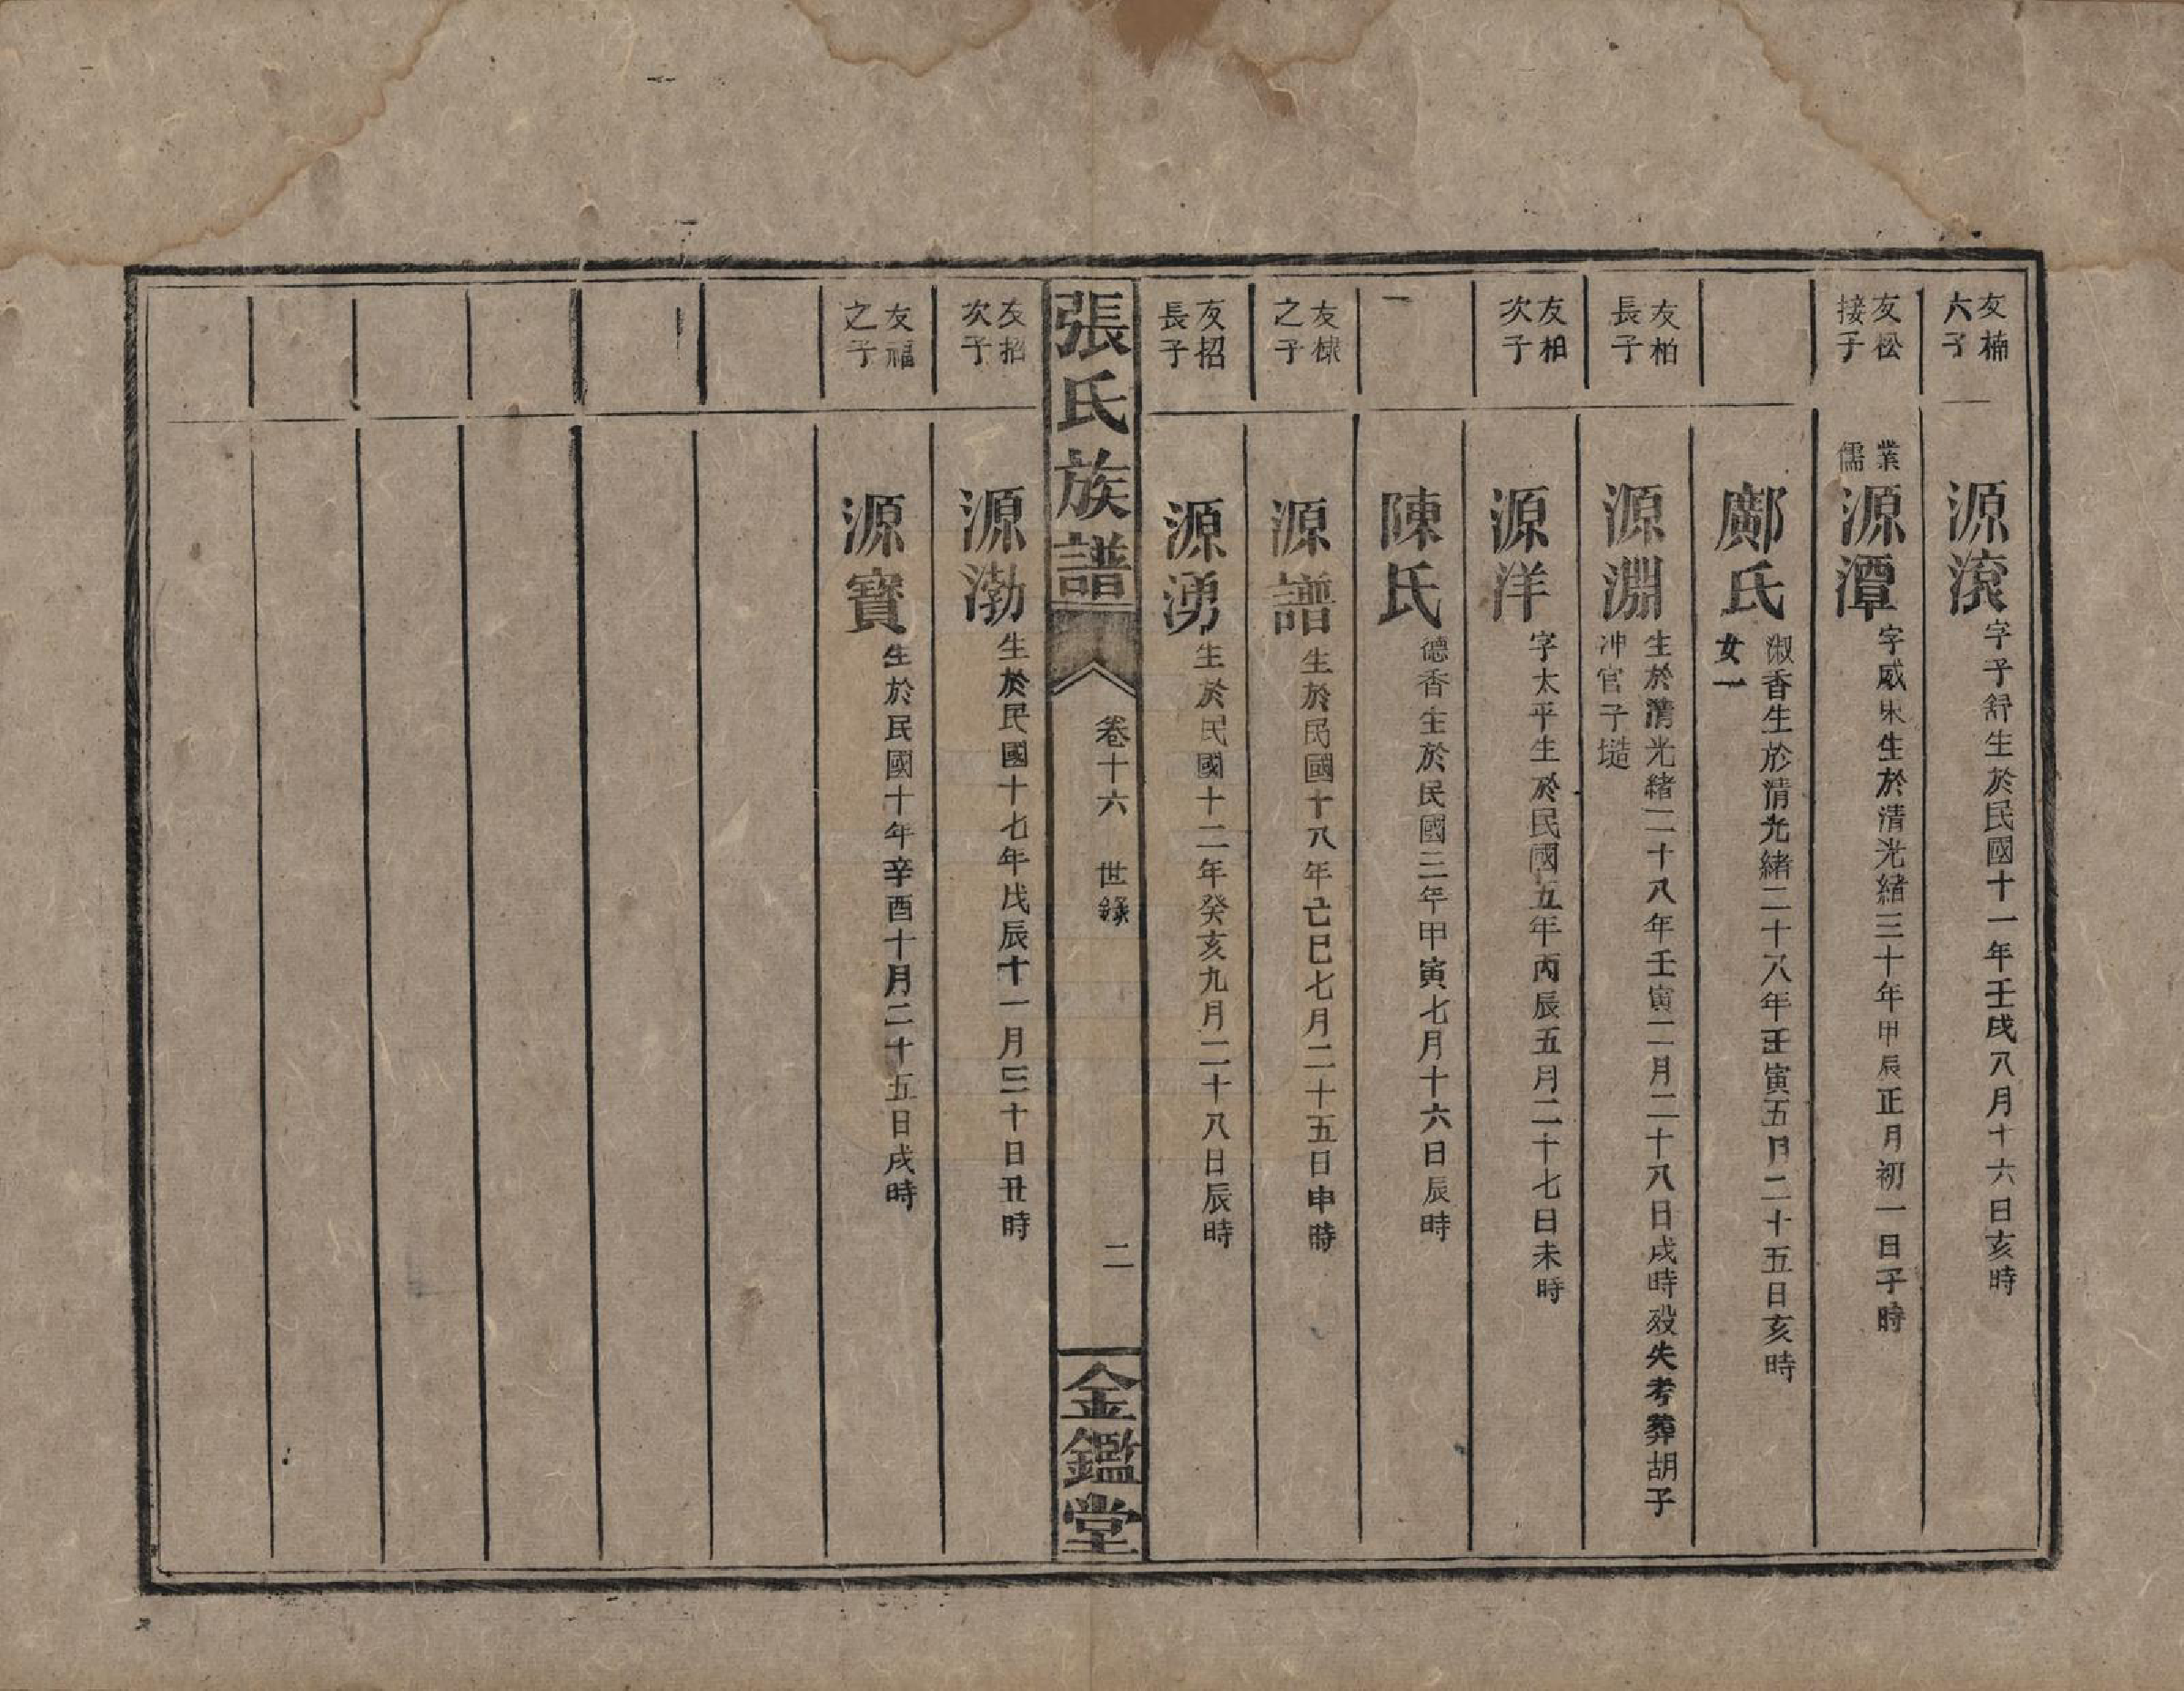 友楠六子 源滾 字予舒生於民國十一年壬戌八月十六日亥時
友松接子 業儒 源潭 字威東生於清光緒三十年甲辰正月初一日子時
鄺氏 淑香生於清光緒二十八年壬寅五月二十五日亥時
女一
友柏長子 源淵 生於清光緒二十八年壬寅二月二十八日戌時歿失考葬胡子
冲官子塸
友相次子 源洋 字太平生於民國五年丙辰五月二十七日未時
陳氏 德香生於民國三年甲寅七月十六日辰時
友棣之子 源譜 生於民國十八年己巳七月二十五日申時
友招長子 源湧 生於民國十二年癸亥九月二十八日辰時
張氏族譜 卷十六 世錄 二 金鑑堂
友招次子 源渤 生於民國十七年戊辰十一月三十日丑時
友福之子 源寶 生於民國十年辛酉十月二十五日戌時